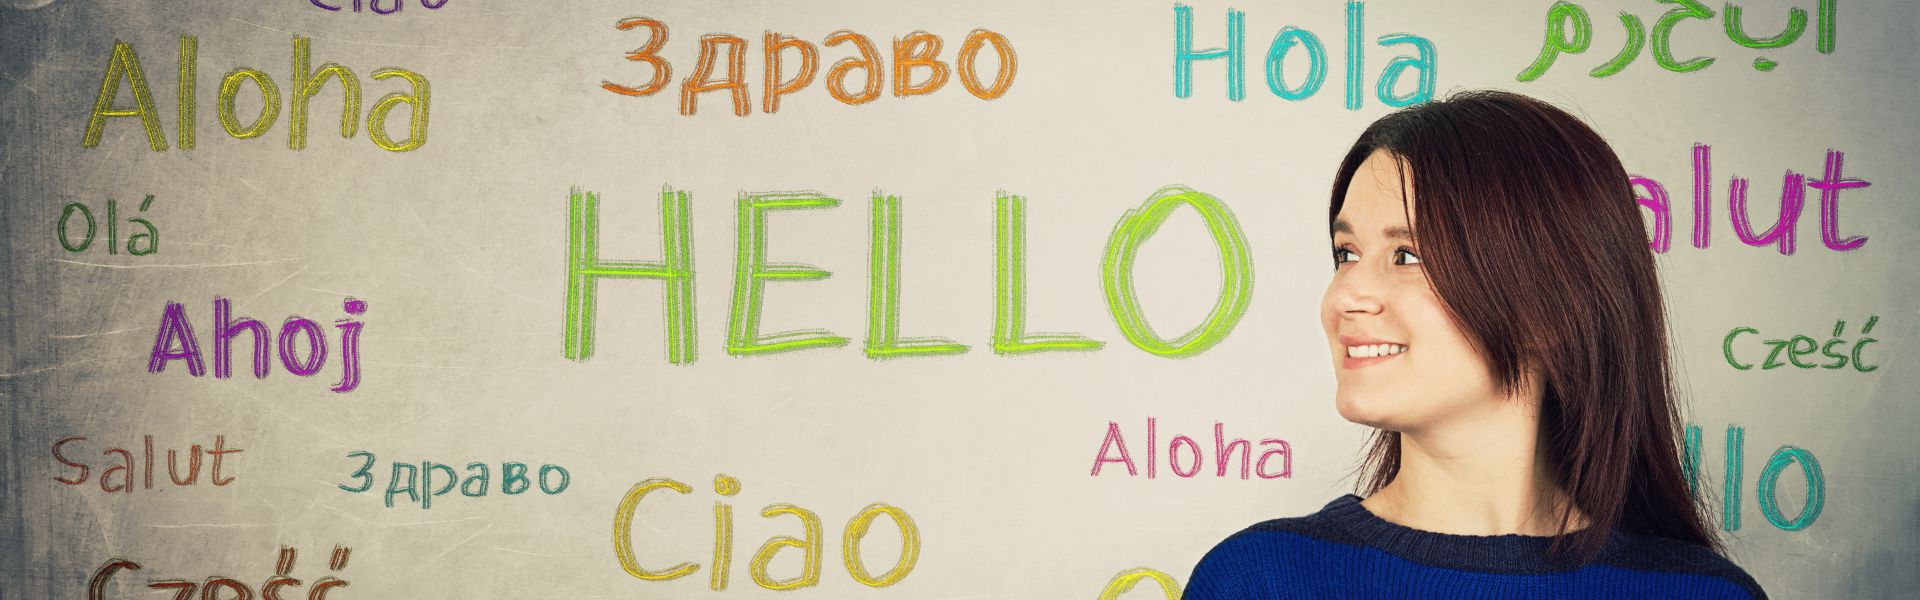 Ciao
Aloha
Здраво
Hola
ابحرم
Olá
HELLO
alut
Ahoj
Cześć
Salut
Здраво
Aloha
llo
Ciao
Cześć